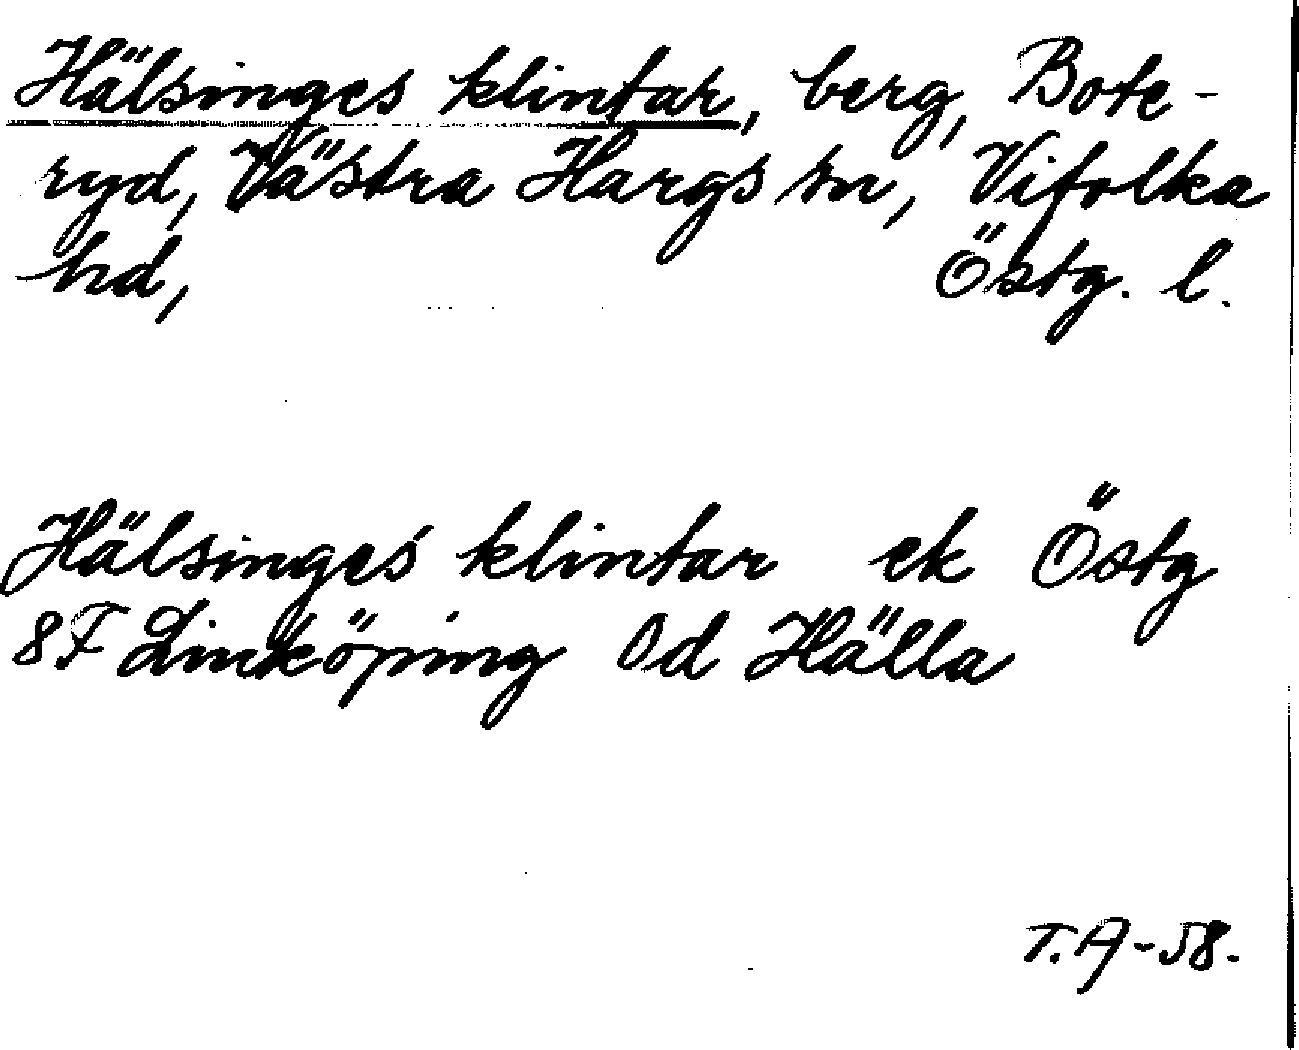 Hälsinges klintar, berg, Bote-
ryd, Västra Hargs sn, Vifolka
hd, Östg. l.
Hälsinges klintar ek Östg
8F Linköping Sd Hälla
T.A-58.